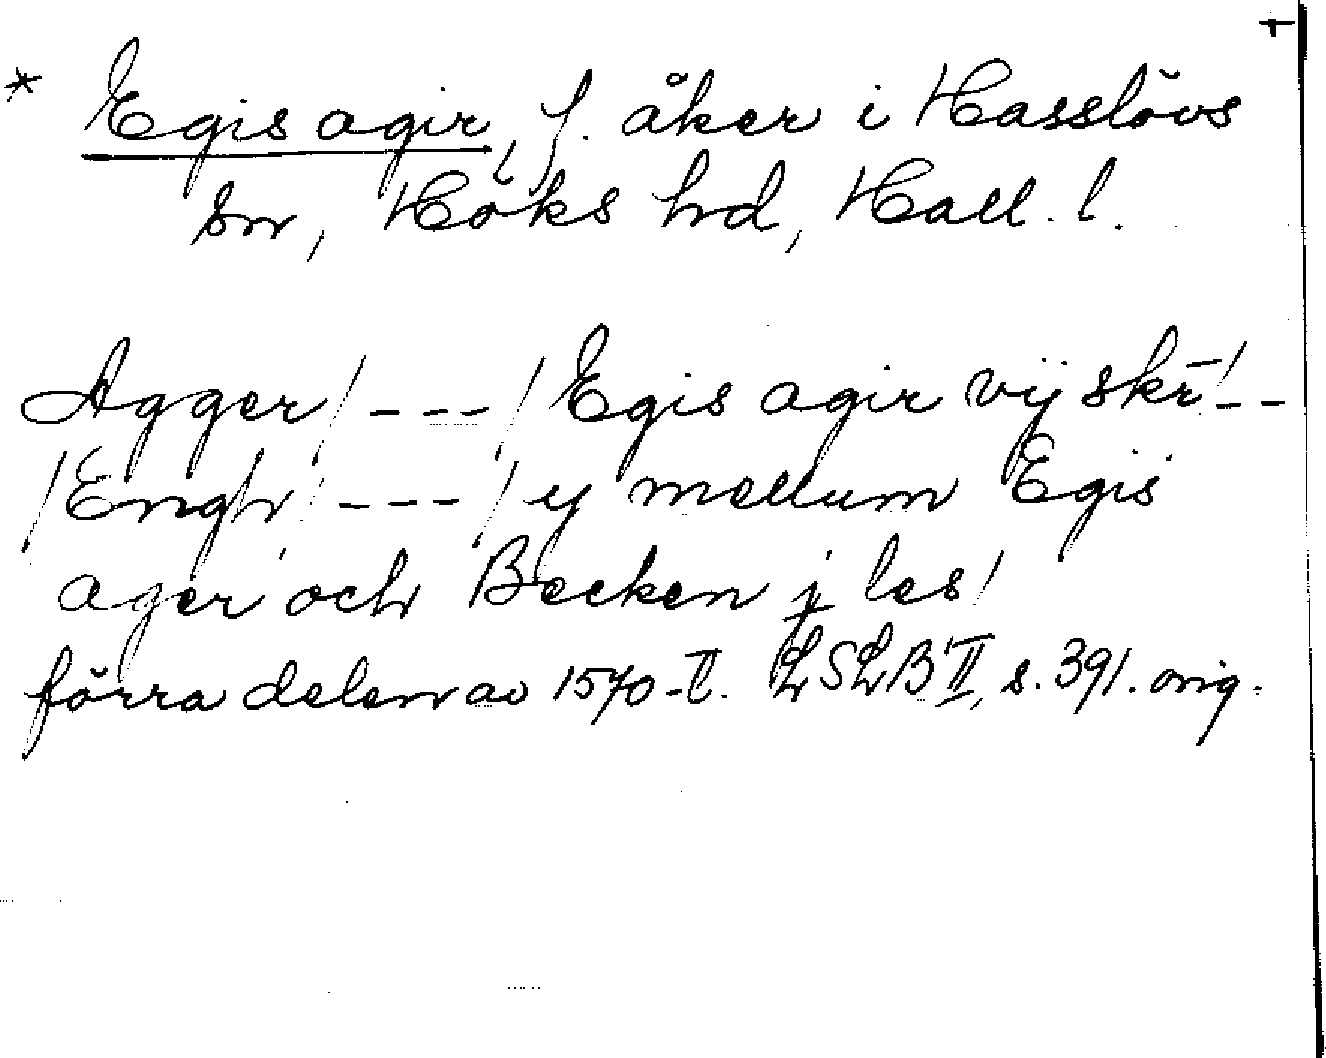 +
* Egis agir, f. åker i Hasslövs
sn, Höks hd, Hall. l.
Agger/---/Egis agir vij skr̄/--
/Engh/---/ij mellum Egis
ager och Becken j les/
förra delen av 1570-t. LSLB II, s. 391. orig.